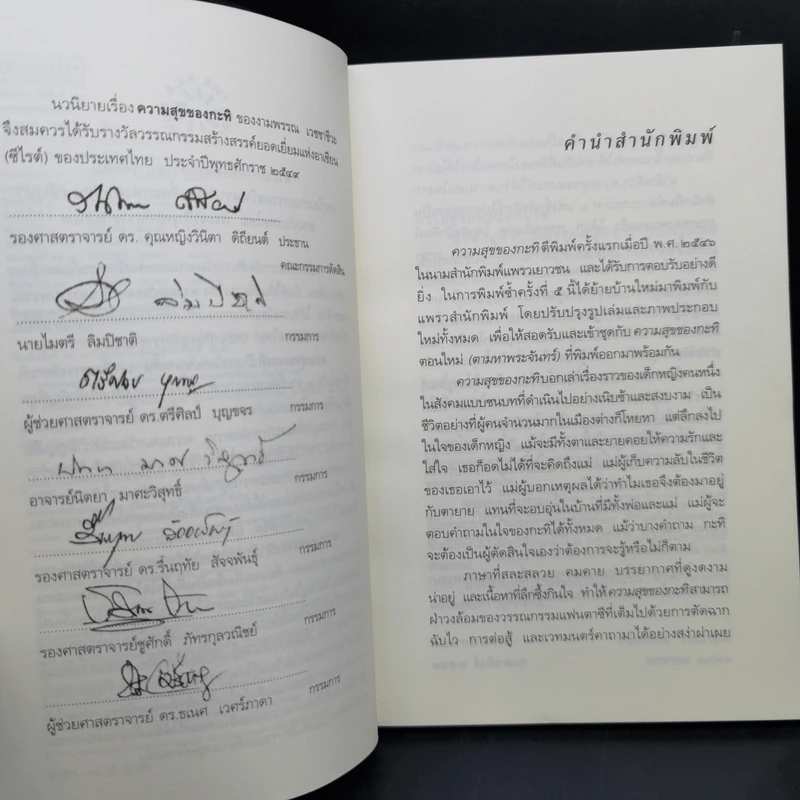 นวนิยายเรื่อง ความสุขของกะทิ ของงามพรรณ เวชชาชีวะ
จึงสมควรได้รับรางวัลวรรณกรรมสร้างสรรค์ยอดเยี่ยมแห่งอาเซียน
(ซีไรต์) ของประเทศไทย ประจำปีพุทธศักราช ๒๕๔๙
รองศาสตราจารย์ ดร. คุณหญิงวินิตา ดิถียนต์ ประธาน
คณะกรรมการตัดสิน
นายไมตรี ลิมปิชาติ กรรมการ
ผู้ช่วยศาสตราจารย์ ดร.ตรีศิลป์ บุญขจร กรรมการ
อาจารย์นิตยา มาศะวิสุทธิ์ กรรมการ
รองศาสตราจารย์ ดร.รื่นฤทัย สัจจพันธุ์ กรรมการ
รองศาสตราจารย์ชูศักดิ์ ภัทรกุลวณิชย์ กรรมการ
ผู้ช่วยศาสตราจารย์ ดร.ธเนศ เวศร์ภาดา กรรมการ
คำนำสำนักพิมพ์
ความสุขของกะทิตีพิมพ์ครั้งแรกเมื่อปี พ.ศ. ๒๕๔๖
ในนามสำนักพิมพ์แพรวเยาวชน และได้รับการตอบรับอย่างดี
ยิ่ง ในการพิมพ์ซ้ำครั้งที่ ๕ นี้ได้ย้ายบ้านใหม่มาพิมพ์กับ
แพรวสำนักพิมพ์ โดยปรับปรุงรูปเล่มและภาพประกอบ
ใหม่ทั้งหมด เพื่อให้สอดรับและเข้าชุดกับ ความสุขของกะทิ
ตอนใหม่ (ตามหาพระจันทร์) ที่พิมพ์ออกมาพร้อมกัน
ความสุขของกะทิบอกเล่าเรื่องราวของเด็กหญิงคนหนึ่ง
ในสังคมแบบชนบทที่ดำเนินไปอย่างเนิบช้าและสงบงาม เป็น
ชีวิตอย่างที่ผู้คนจำนวนมากในเมืองต่างก็โหยหา แต่ลึกลงไป
ในใจของเด็กหญิง แม้จะมีทั้งตาและยายคอยให้ความรักและ
ใส่ใจ เธอก็อดไม่ได้ที่จะคิดถึงแม่ แม่ผู้เก็บความลับในชีวิต
ของเธอเอาไว้ แม่ผู้บอกเหตุผลได้ว่าทำไมเธอจึงต้องมาอยู่
กับตายาย แทนที่จะอบอุ่นในบ้านที่มีทั้งพ่อและแม่ แม่ผู้จะ
ตอบคำถามในใจของกะทิได้ทั้งหมด แม้ว่าบางคำถาม กะทิ
จะต้องเป็นผู้ตัดสินใจเองว่าต้องการจะรู้หรือไม่ก็ตาม
ภาษาที่สละสลวย คมคาย บรรยากาศที่ดูงดงาม
น่าอยู่ และเนื้อหาที่ลึกซึ้งกินใจ ทำให้ ความสุขของกะทิสามารถ
ฝ่าวงล้อมของวรรณกรรมแฟนตาซีที่เต็มไปด้วยการตัดฉาก
ฉับไว การต่อสู้ และเวทมนตร์คาถามาได้อย่างสง่าผ่าเผย